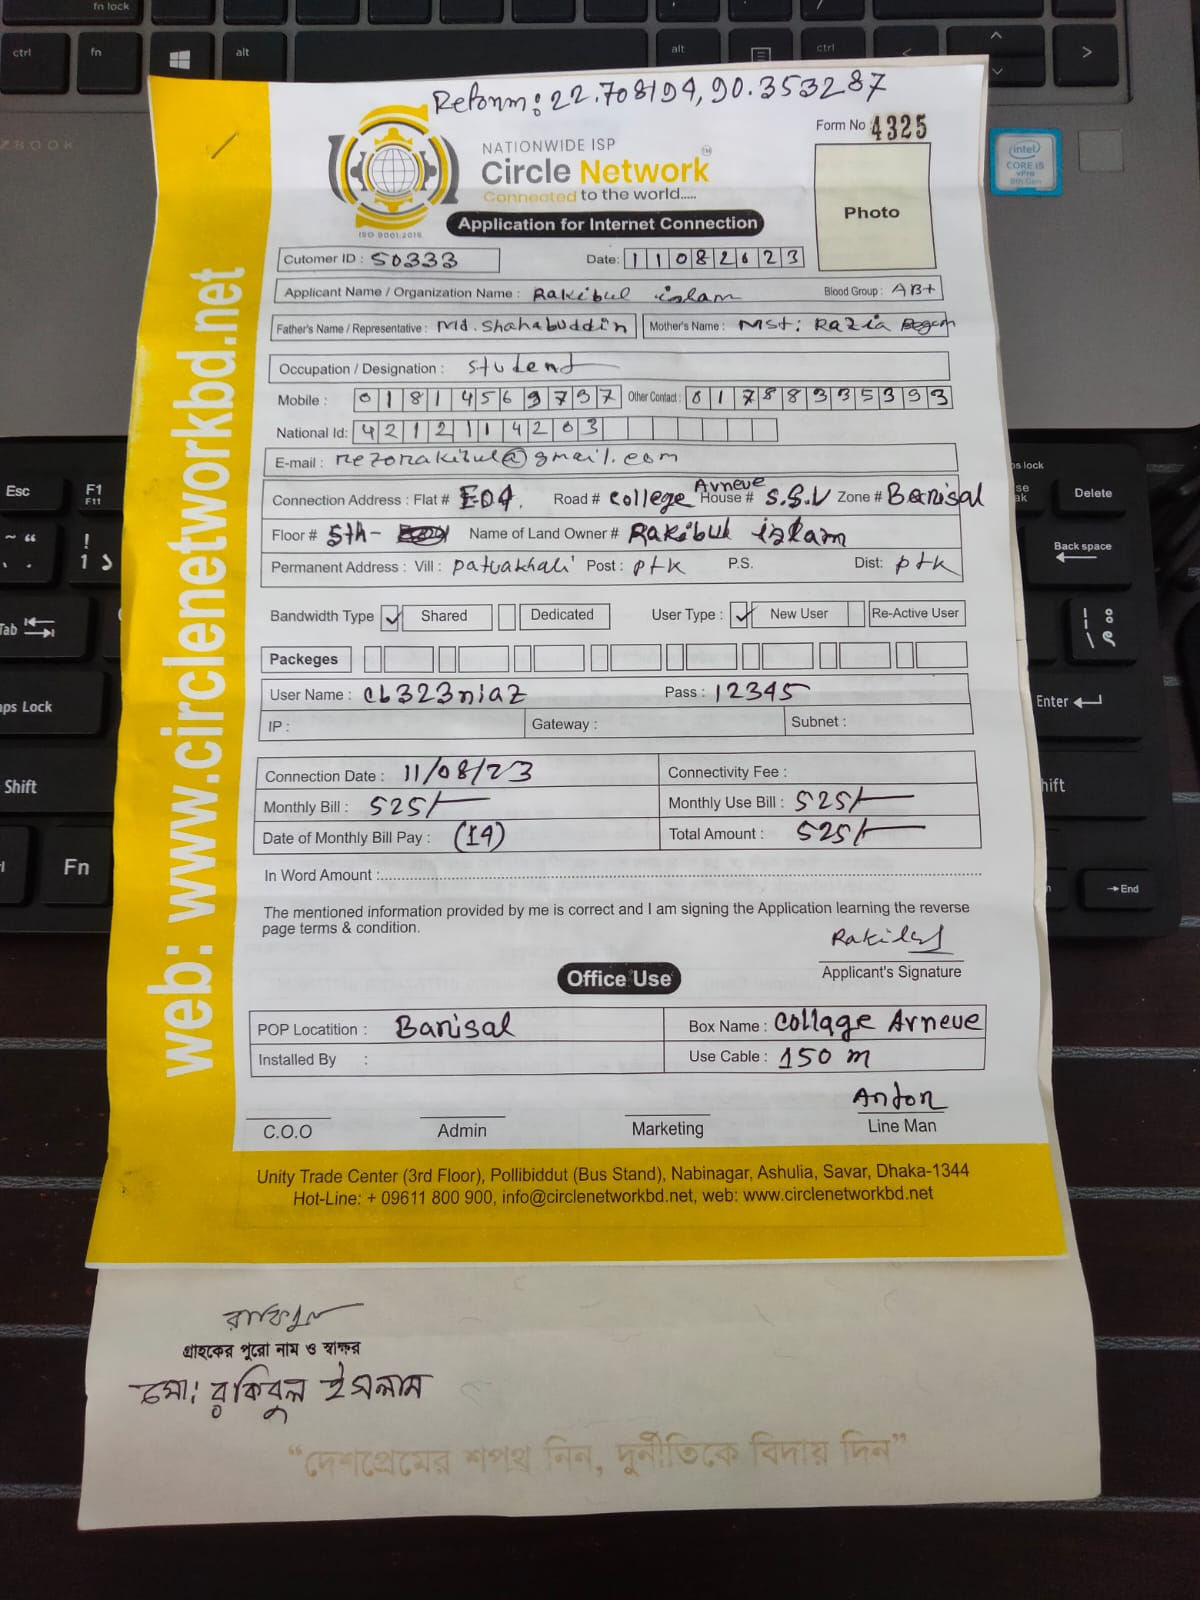 Reform: 22.708194, 90.353287
Form No 4325
NATIONWIDE ISP
Circle Network™
Connected to the world.....
ISO 9001:2015
Application for Internet Connection
Photo
Cutomer ID : 50333 Date: 11082023
Applicant Name / Organization Name : Rakibul islam Blood Group : AB+
Father's Name / Representative : Md. Shahabuddin Mother's Name : Mst: Razia Begum
Occupation / Designation : Student
Mobile : 01814569737 Other Contact : 01788335393
National Id: 4212114203
E-mail : rezorakibul@gmail.com
Connection Address : Flat # E04. Road # College Avneue House # S.S.V Zone # Barisal
Floor # 5th- Name of Land Owner # Rakibul islam
Permanent Address : Vill : patuakhali Post : ptk P.S. Dist: ptk
Bandwidth Type ✓ Shared Dedicated User Type : ✓ New User Re-Active User
Packeges
User Name : cb323niaz Pass : 12345
IP : Gateway : Subnet :
Connection Date : 11/08/23 Connectivity Fee :
Monthly Bill : 525/- Monthly Use Bill : 525/-
Date of Monthly Bill Pay : (14) Total Amount : 525/-
In Word Amount :
The mentioned information provided by me is correct and I am signing the Application learning the reverse
page terms & condition.
Rakibul
Applicant's Signature
Office Use
POP Locatition : Barisal Box Name : Collage Avneue
Installed By : Use Cable : 150 m
Anton
C.O.O Admin Marketing Line Man
Unity Trade Center (3rd Floor), Pollibiddut (Bus Stand), Nabinagar, Ashulia, Savar, Dhaka-1344
Hot-Line: + 09611 800 900, info@circlenetworkbd.net, web: www.circlenetworkbd.net
web: www.circlenetworkbd.net
রাকিবুল
গ্রাহকের পুরো নাম ও স্বাক্ষর
মো: রকিবুল ইসলাম
“দেশপ্রেমের শপথ নিন, দুর্নীতিকে বিদায় দিন”
fn lock
ctrl fn alt alt ctrl
ZBOOK
intel
CORE i5
vPro
8th Gen
Esc F1
F11
Tab
Caps Lock
Shift
Fn
Delete
Back space
Enter
End